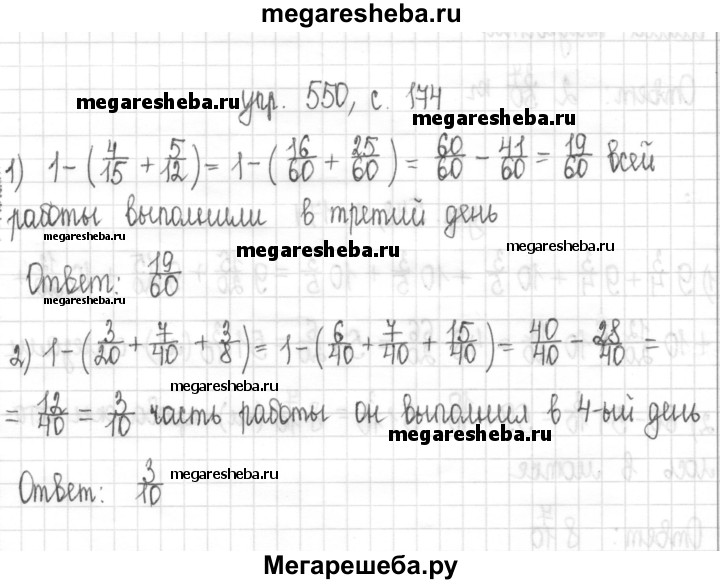 megaresheba.ru
упр. 550, с. 174
megaresheba.ru
megaresheba.ru
1) 1-(4/15 + 5/12) = 1-(16/60 + 25/60) = 60/60 - 41/60 = 19/60 всей
работы выполнили в третий день
megaresheba.ru
megaresheba.ru
megaresheba.ru
Ответ: 19/60
megaresheba.ru
2) 1-(3/20 + 7/40 + 3/8) = 1-(6/40 + 7/40 + 15/40) = 40/40 - 28/40 =
megaresheba.ru
= 12/40 = 3/10 часть работы он выполнил в 4-ый день
megaresheba.ru
Ответ: 3/10
megaresheba.ru
Мегарешеба.ру